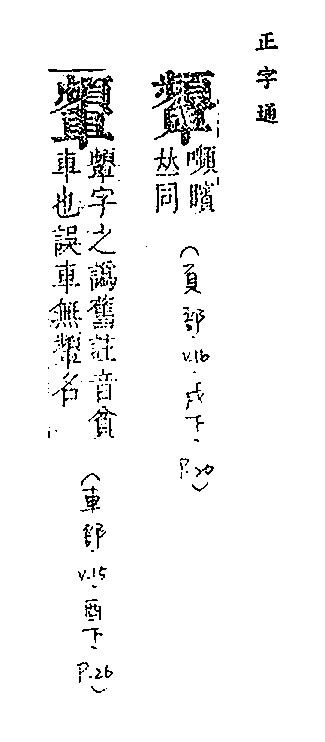 正字通
嚬矉
𠀤同
(頁部.v.16.戌下.P.20)
字之譌舊註音貧
車也誤車無名
(車部.v.15.酉下.P.26)